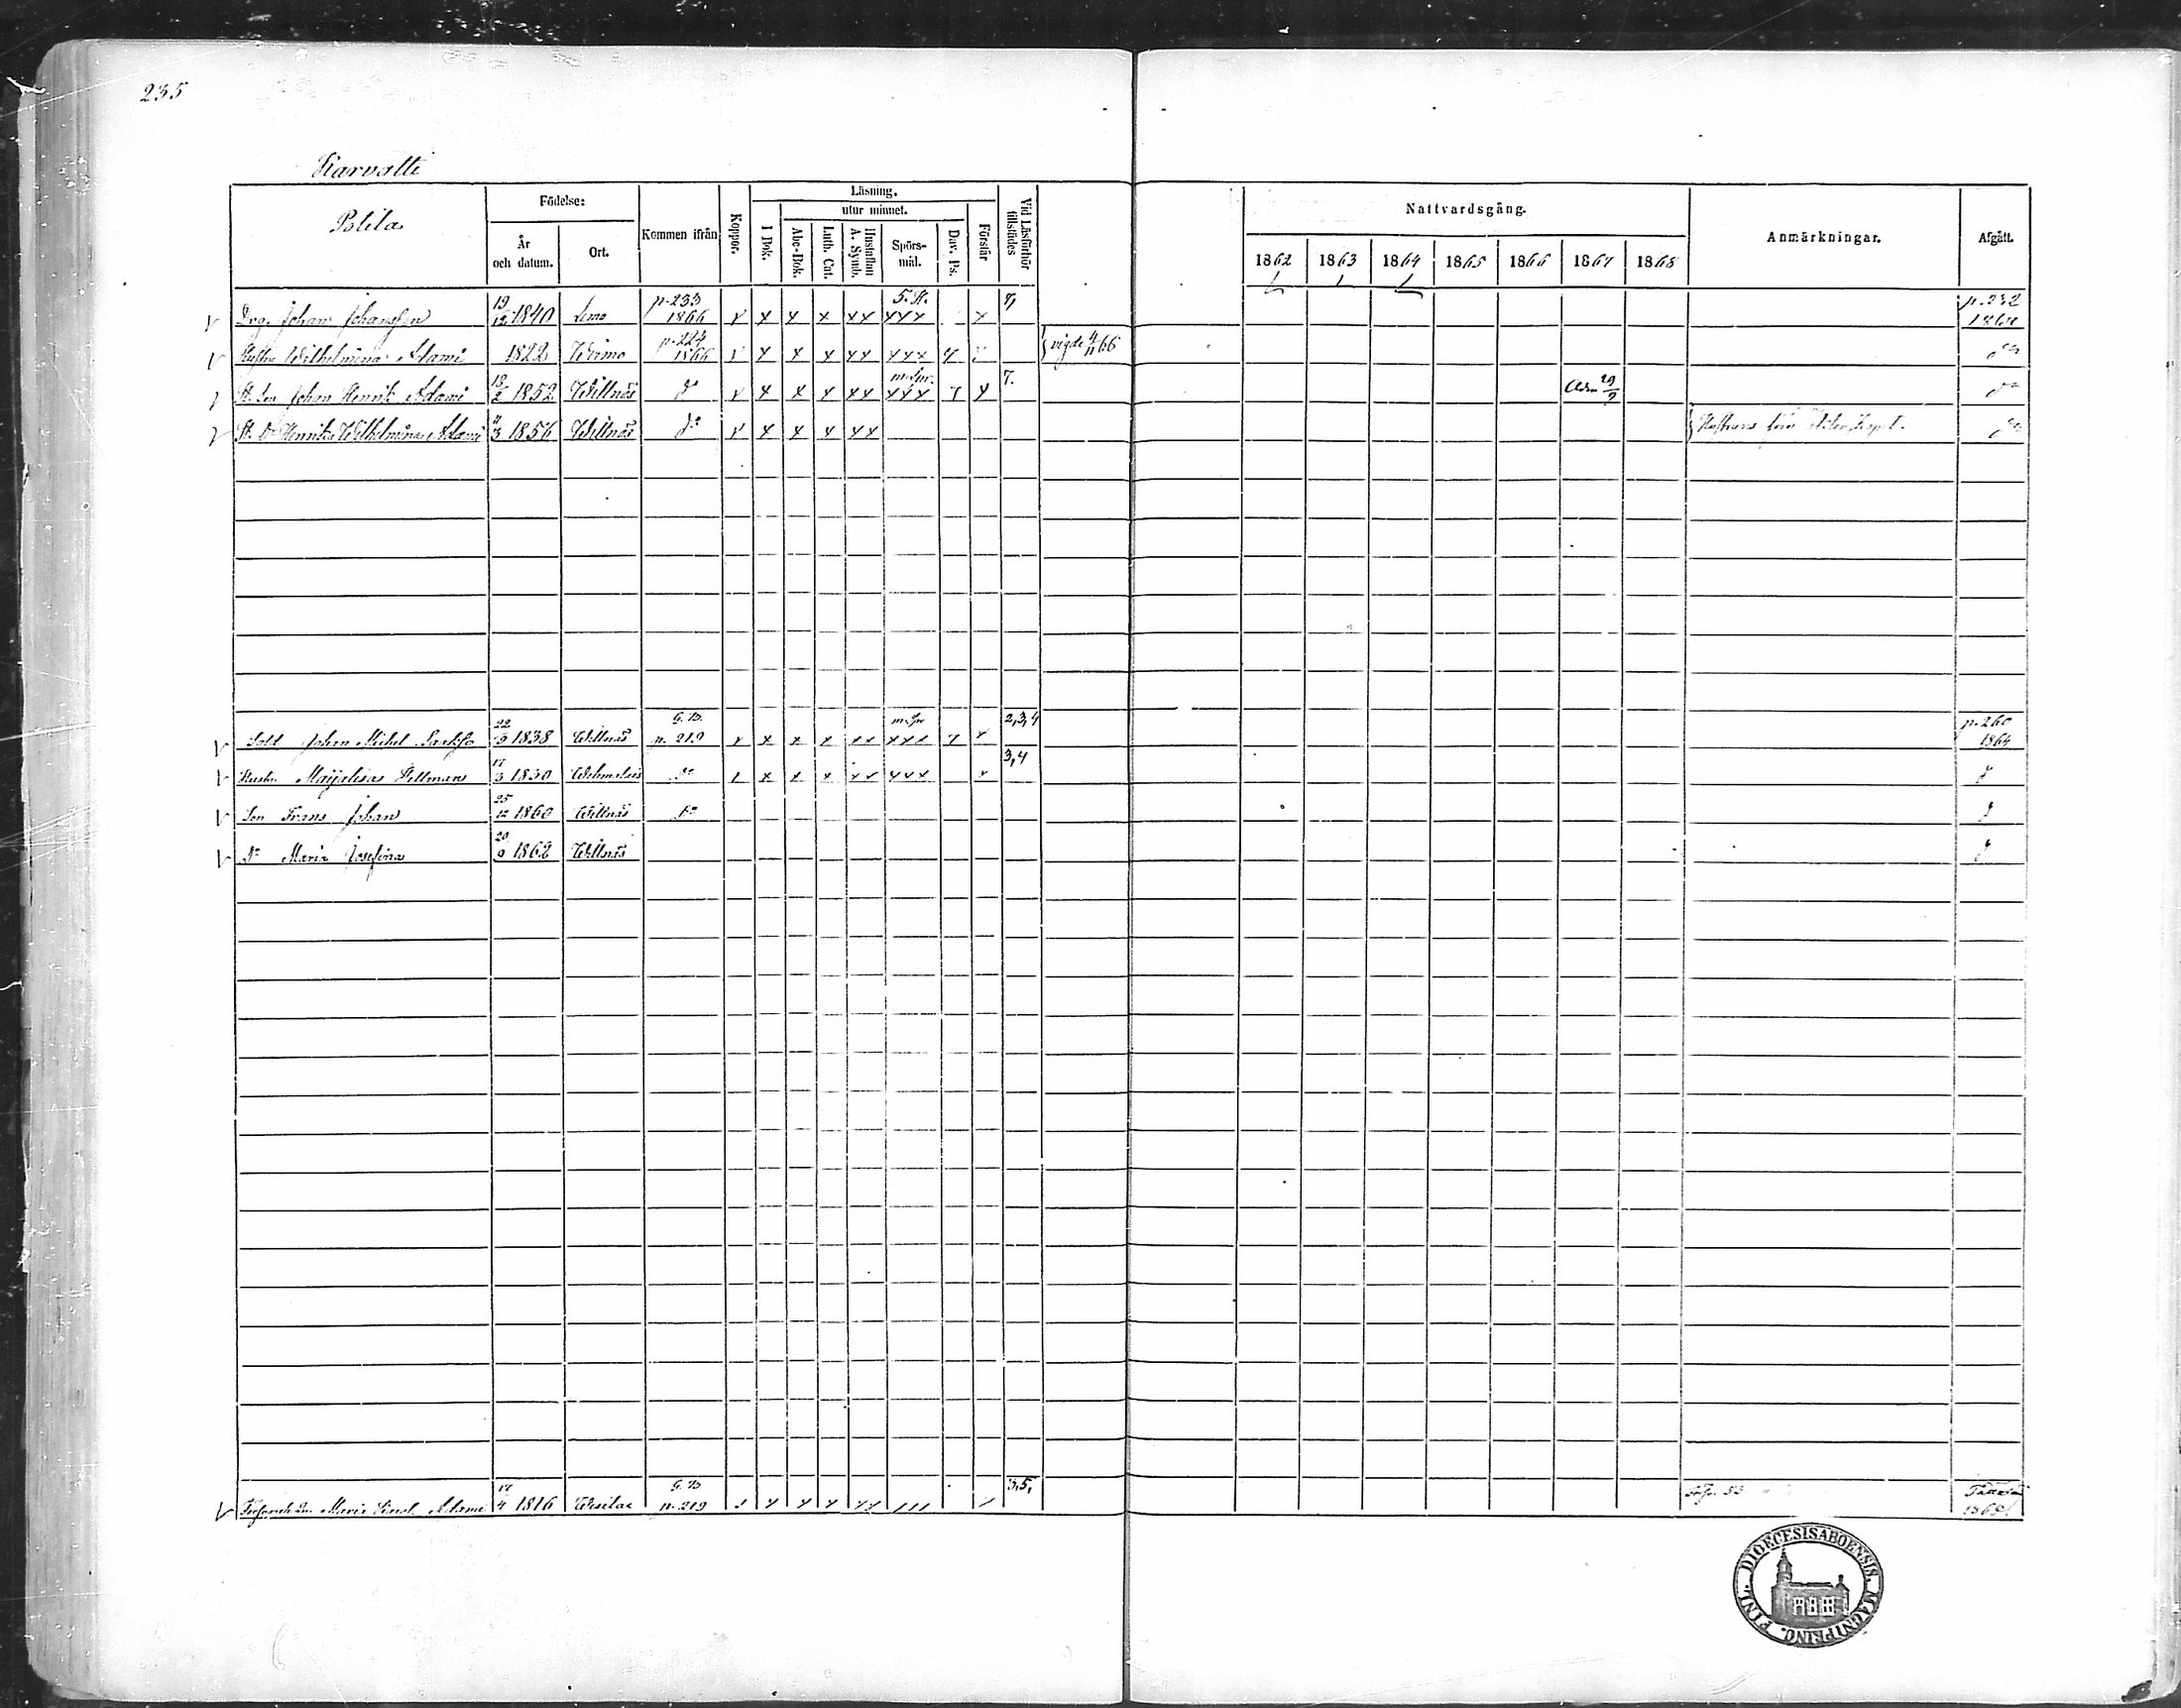 235
Karvatti
Potila
Födelse:
År och datum.
Ort.
Kommen ifrån
Koppor.
Läsning.
I Bok.
utur minnet.
Abc-Bok.
Luth. Cat.
Hustaflan A. Symb.
Spörsmål.
Dav. Ps.
Förstår
Vid Läsförhör tillstädes
Nattvardsgång.
1862 1863 1864 1865 1866 1867 1868
Anmärkningar.
Afgått.
Drg. Johan Johansson 19/12 1840 Lemo p. 233 1866 x x x x xx 5. H. xxx x 7, p. 232
Hustru Wilhelmina Adami 1822 Wirmo p. 224 1866 x x x x xx xxx vigde 4/11 66 do
St. Son Johan Henrik Adami 18/2 1852 Willnäs do x x x x xx m. Spr. xxx x 7. Adm 29/9 do
St. Dr Henrika Wilhelmina Adami 11/3 1856 Willnäs do x x x x xx Hustruns förra do
Sold. Johan Mikel 22/3 1838 Willnäs G. B. p. 219 x x x x xx m. Spr xxx x 2,3,4 p. 260 1864
Hustru Maijalisa Hellman 17/3 1830 do x x x x xx xxx x 3,4 do
Son Frans Johan 25/12 1860 Willnäs do do
Dr Maria Josefina 20/9 1862 Willnäs do
Maria Adami 17/4 1816 G. B. p. 219 x x x x xx 3,5,
FINL. DIOECESIS ABOENSIS. MAGNI PRINC.